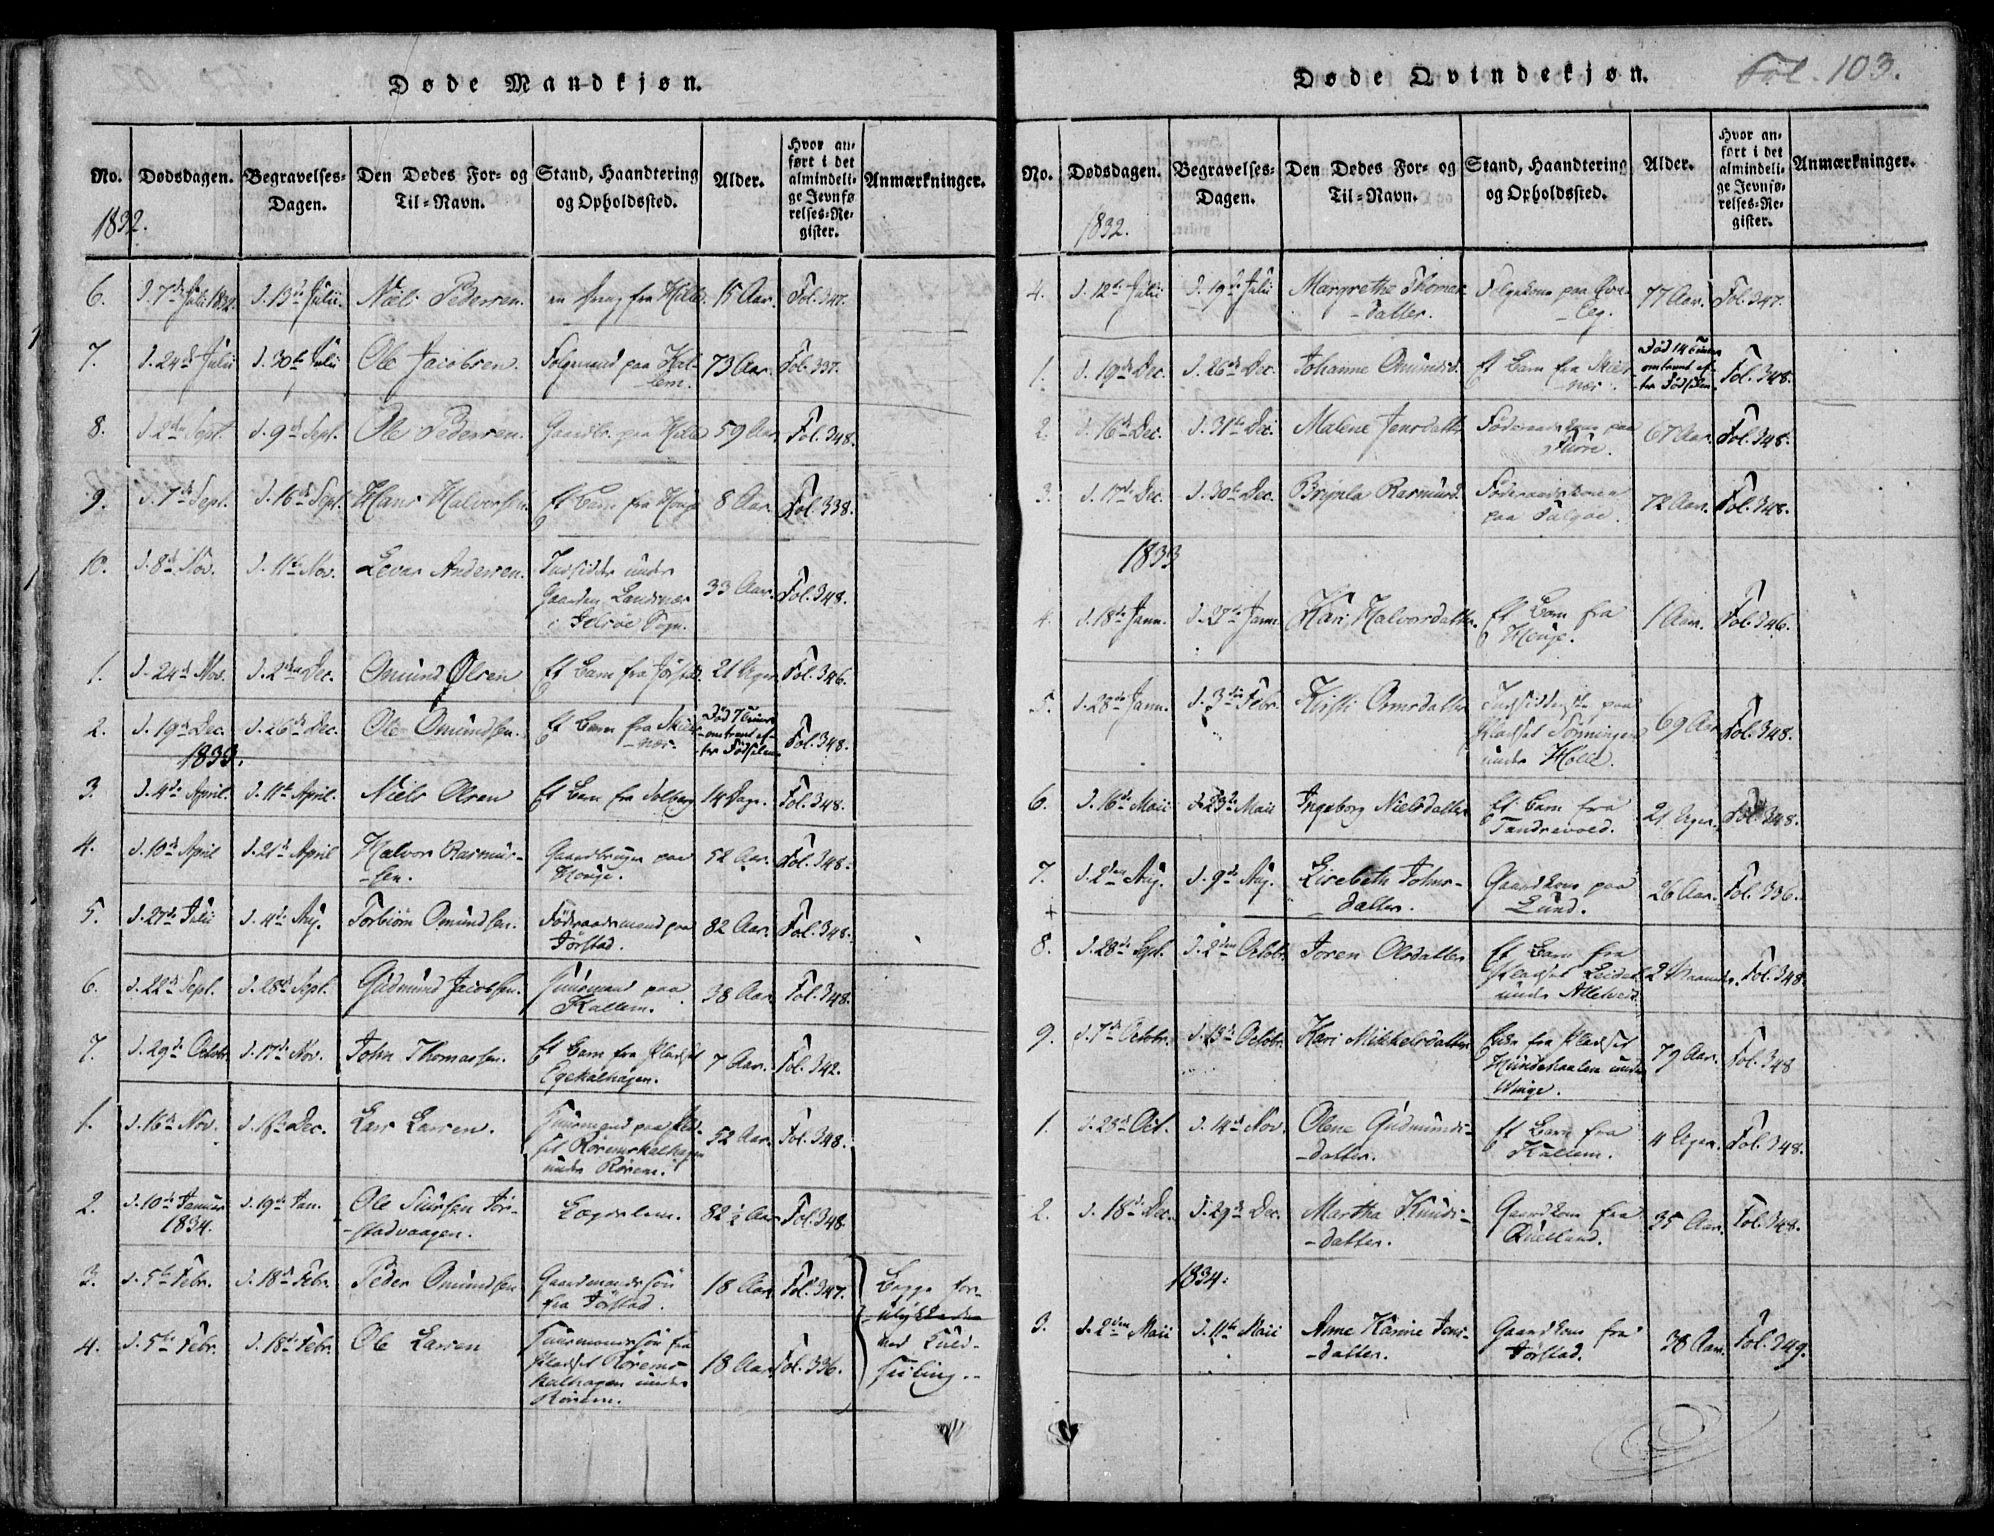 Døde Mandkjøn.
No. Dødsdagen. Begravelses-Dagen. Den Dødes For- og Til-Navn. Stand, Haandtering og Opholdssted. Alder. Hvor anført i det almindelige Jevnførelses-Register. Anmærkninger.
1832.
6. d. 7de Julii 1832. d. 13de Julii. Niels Pedersen. en Dreng fra Hille 15 Aar. Fol. 347.
7. d. 24de Julii d. 30te Julii Ole Jacobsen. Folgemand paa Kallem. 73 Aar. Fol. 337.
8. d. 2den Sept. d. 9de Sept. Ole Pedersen. Gaardbr. paa Hille 59 Aar Fol. 348.
9. d. 7de Sept. d. 16de Sept. Hans Halvorsen. Et Barn fra Houge 8 Aar. Fol. 338.
10. d. 8de Nov. d. 11te Nov. Levar Andersen. Indsidder under
Gaarden Landsnæs
i Jelsøe Sogn. 33 Aar. Fol. 348.
1. d. 24de Nov. d. 2den Dec. Omund Olsen Et Barn fra Jørstad 21 Uger Fol. 346.
2. d. 19de Dec. d. 26de Dec. Ole Omundsen. Et Barn fra
-nær. Død 7 Timer
omtrent ef-
ter Fødselen Fol. 348.
1833.
3. d. 4de April. d. 11te April. Niels Olsen Et Barn fra Solberg 14 Dage. Fol. 348.
4. d. 10de April d. 21de April Halvor Rasmus-
-sen. Gaardbruger paa
Houge. 52 Aar. Fol. 348.
5. d. 27de Julii d. 4de Aug. Torbiørn Omundsen. Føderaadsmand paa
Jørstad. 82 Aar. Fol. 348.
6. d. 22de Sept. d. 28de Sept. Gudmund Jacobsen. Huusmand paa
Kallem. 38 Aar Fol. 348.
7. d. 29de Octobr. d. 17de Nov. John Thomassen. Et Barn fra Pladset
Egekalhagen. 7 Aar. Fol. 342.
1. d. 16de Nov. d. 18de Dec. Lars Larsen. Huusmand paa Plad-
set Røremskalhagen
under Rørem. 52 Aar. Fol. 348.
2. d. 10de Januar
1834. d. 19de Jan. Ole Siursen Jør-
-stadvaagen. Lægdslem. 82 ½ Aar Fol. 348
3. d. 5te Febr. d. 18de Febr. Peder Omundsen Gaardmandssøn
fra Jørstad. 18 Aar Fol. 347. Begge for-
ulykkedes
4. d. 5te Febr. d. 18de Febr. Ole Larsen Huusmandssøn fra
Pladset Rørems-
kalhagen under
Rørem. 18 Aar Fol. 336. ved Kuld-
seiling.
Døde Qvindekjøn.
Fol. 103.
No. Dødsdagen. Begravelses-Dagen. Den Dødes For- og Til-Navn. Stand, Haandtering og Opholdssted. Alder. Hvor anført i det almindelige Jevnførelses-Register. Anmærkninger.
1832.
4. d. 12te Julii d. 19de Julii Margrethe Thomas-
-datter. Folgekone paa
77 Aar. Fol. 347.
1. d. 19de Dec. d. 26de Dec. Johanne Omundsd. Et Barn fra
-nær. Død 14 Timer
omtrent ef-
ter Fødselen. Fol. 348.
2. d. 16de Dec. d. 31te Dec. Malene Jensdatter Føderaadskone paa
67 Aar. Fol. 348.
3. d. 17de Dec. d. 30te Dec. Brynla Rasmusd. Føderaadskone
paa Talgøe. 72 Aar. Fol. 348.
1833
4. d. 18de Jann. d. 27de Jann. Kari Halvorsdatter. Et Barn fra
Houge. 1 Aar. Fol. 346.
5. d. 28de Jann. d. 3die Febr. Kirsti Ormsdatter Indsidderske paa
Pladset
under 69 Aar Fol. 348.
6. d. 16de Maii d. 23de Maii Ingeborg Nielsdatter Et Barn fra
Tandrevold. 21 Uger. Fol. 348.
7. d. 2den Aug. d. 9de Aug. Lisebeth Johns-
-datter. Gaardkone paa
Lund. 26 Aar. Fol. 336.
+
8. d. 28de Sept. d. 2den Octobr. Joren Olsdatter Et Barn fra
Pladset
under Alleved. 2 Maaneder. Fol. 348.
9. d. 7de Octobr. d. 13de Octobr. Kari Mikkelsdatter Enke fra Pladset
under
Winge. 79 Aar. Fol. 348
1. d. 28de Oct. d. 14de Nov. Olene Gudmunds-
-datter. Et Barn fra
Kallem. 4 Uger. Fol. 348.
2. d. 18de Dec. d. 29de Dec. Martha Knuds-
-datter. Gaardkone fra
35 Aar. Fol. 348.
1834.
3. d. 2den Maii d. 11te Maii Anne Karine Jens-
-datter. Gaardkone fra
Jørstad. 38 Aar. Fol. 349.